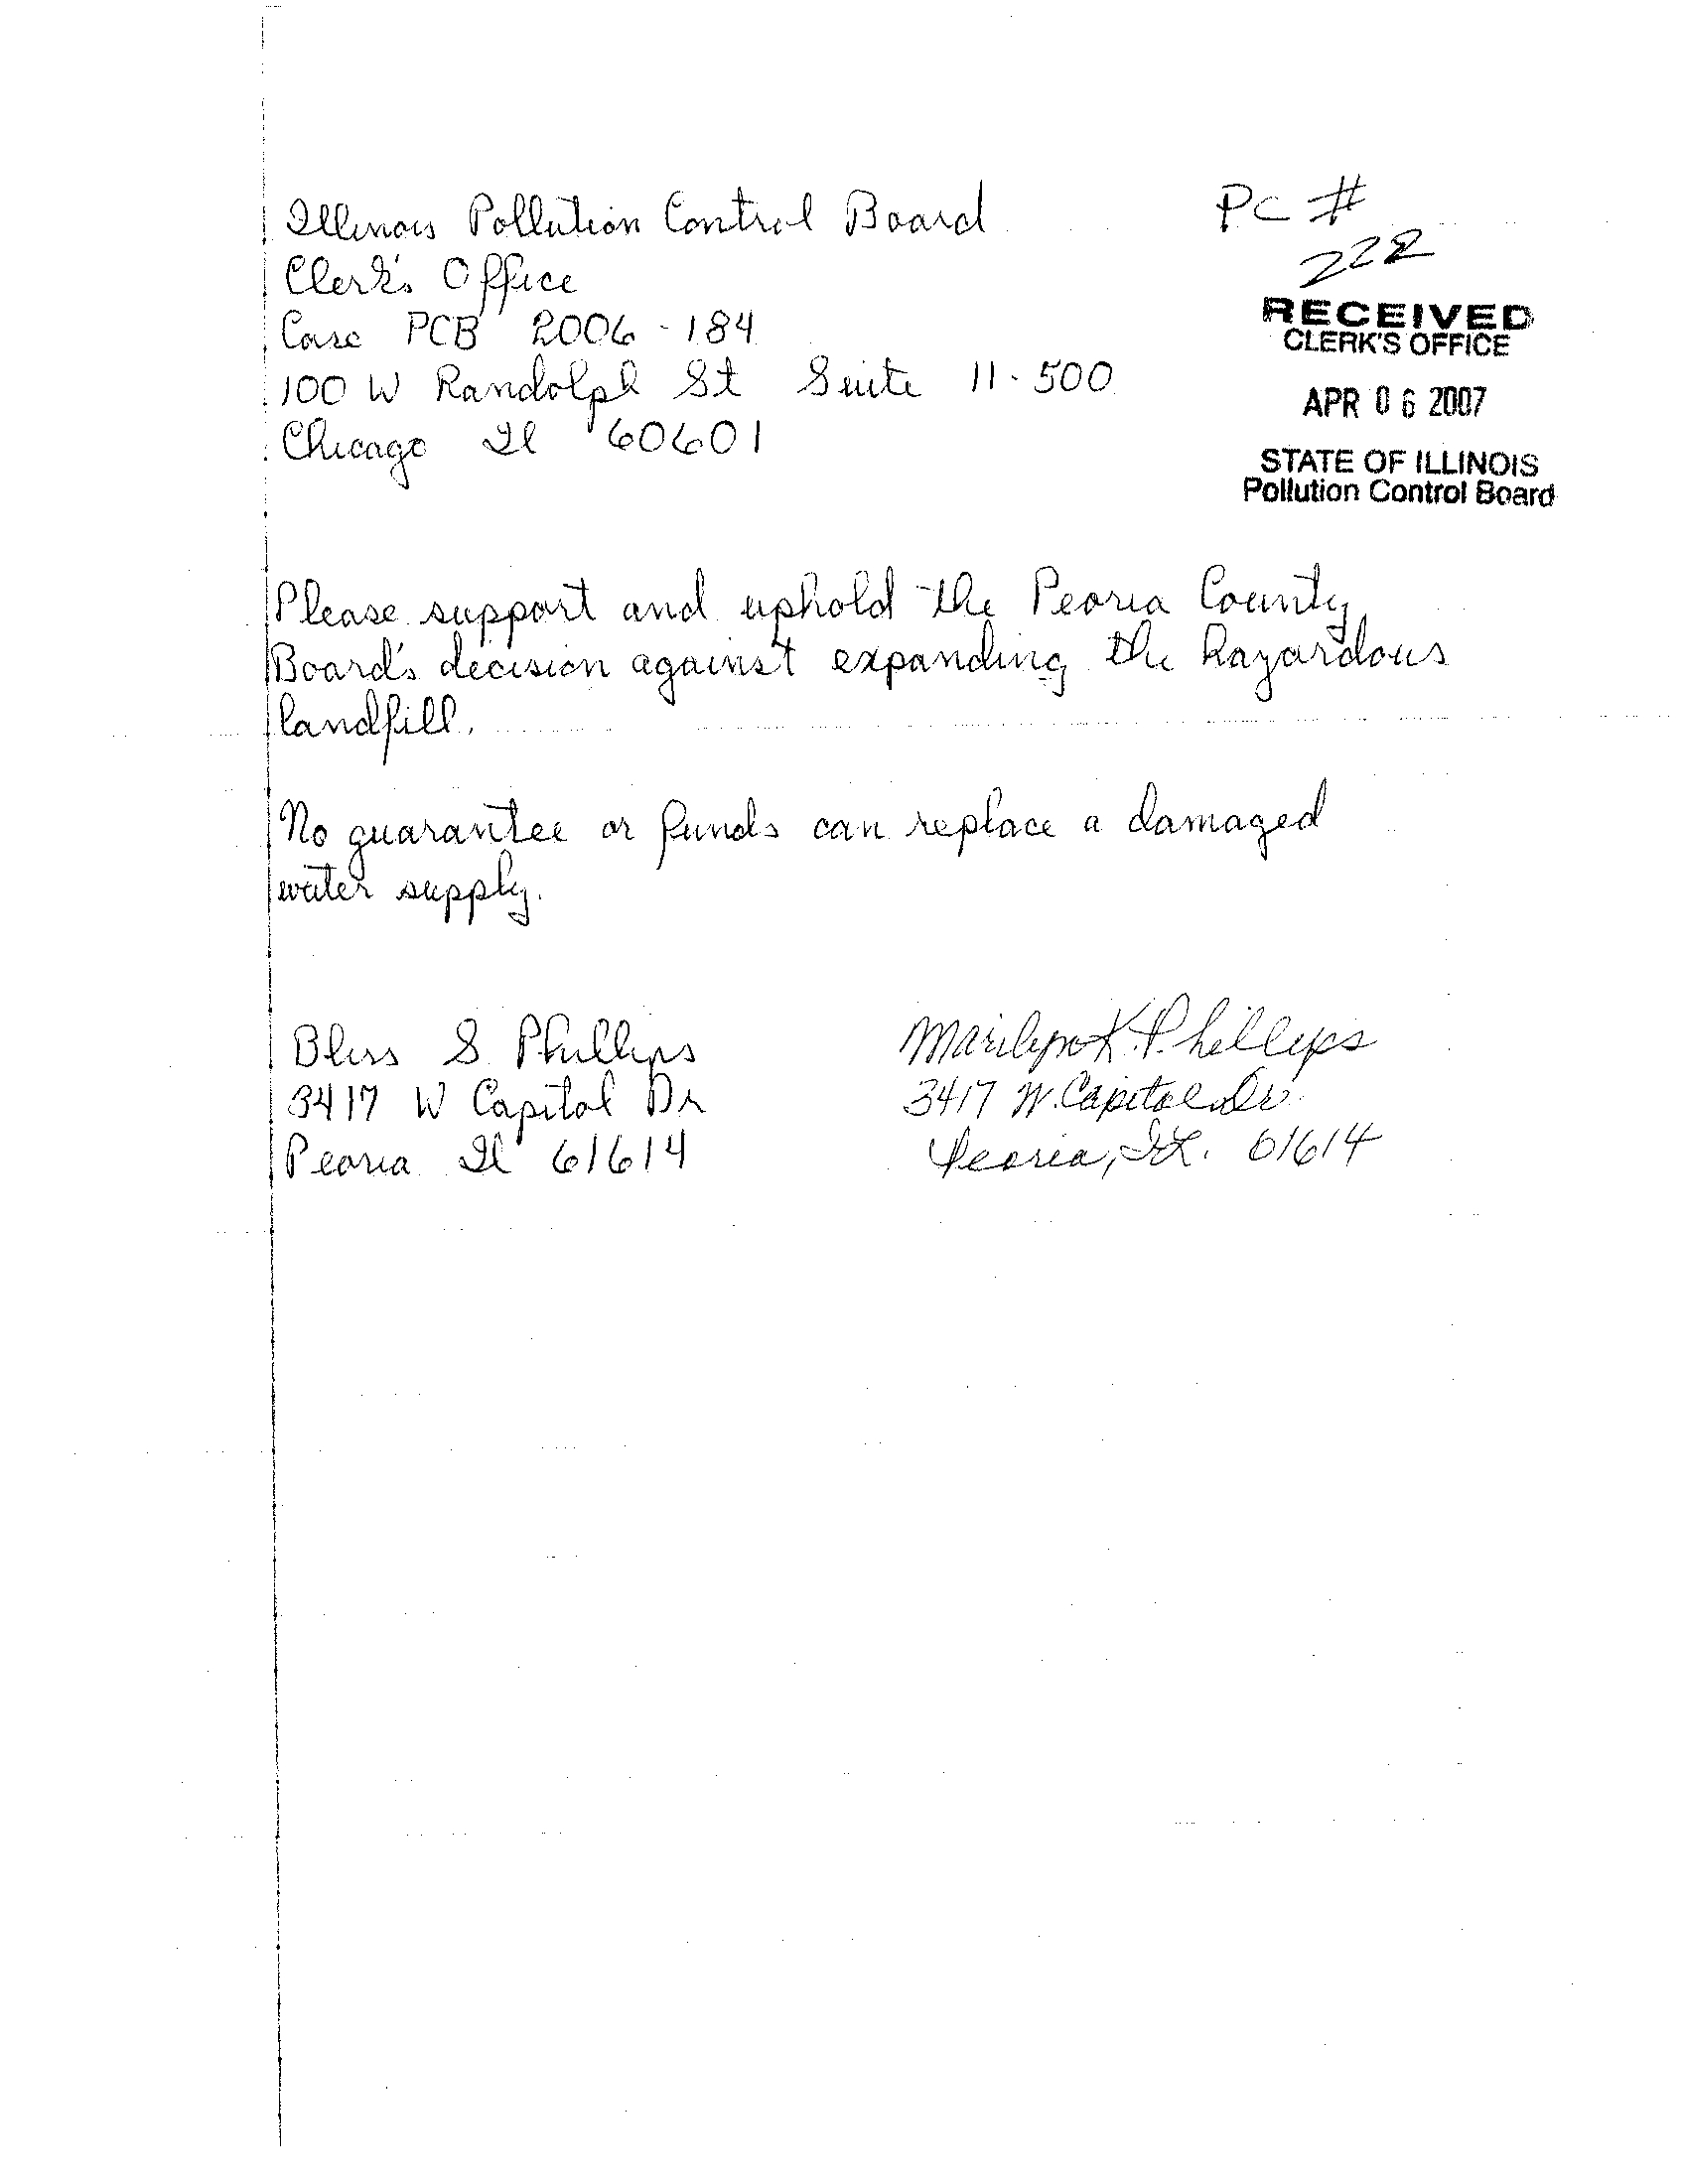 Illinois Pollution Control Board
Clerk's Office
Case PCB 2006-184
100 W Randolph St Suite 11-500
Chicago Il 60601
PC #
222
RECEIVED
CLERK'S OFFICE
APR 06 2007
STATE OF ILLINOIS
Pollution Control Board
Please support and uphold the Peoria County
Board's decision against expanding the hazardous
landfill.
No guarantee or funds can replace a damaged
water supply.
Bliss S. Phillips
3417 W Capitol Dr
Peoria Il 61614
Marilyn K. Phillips
3417 W. Capitol Dr.
Peoria, IL. 61614